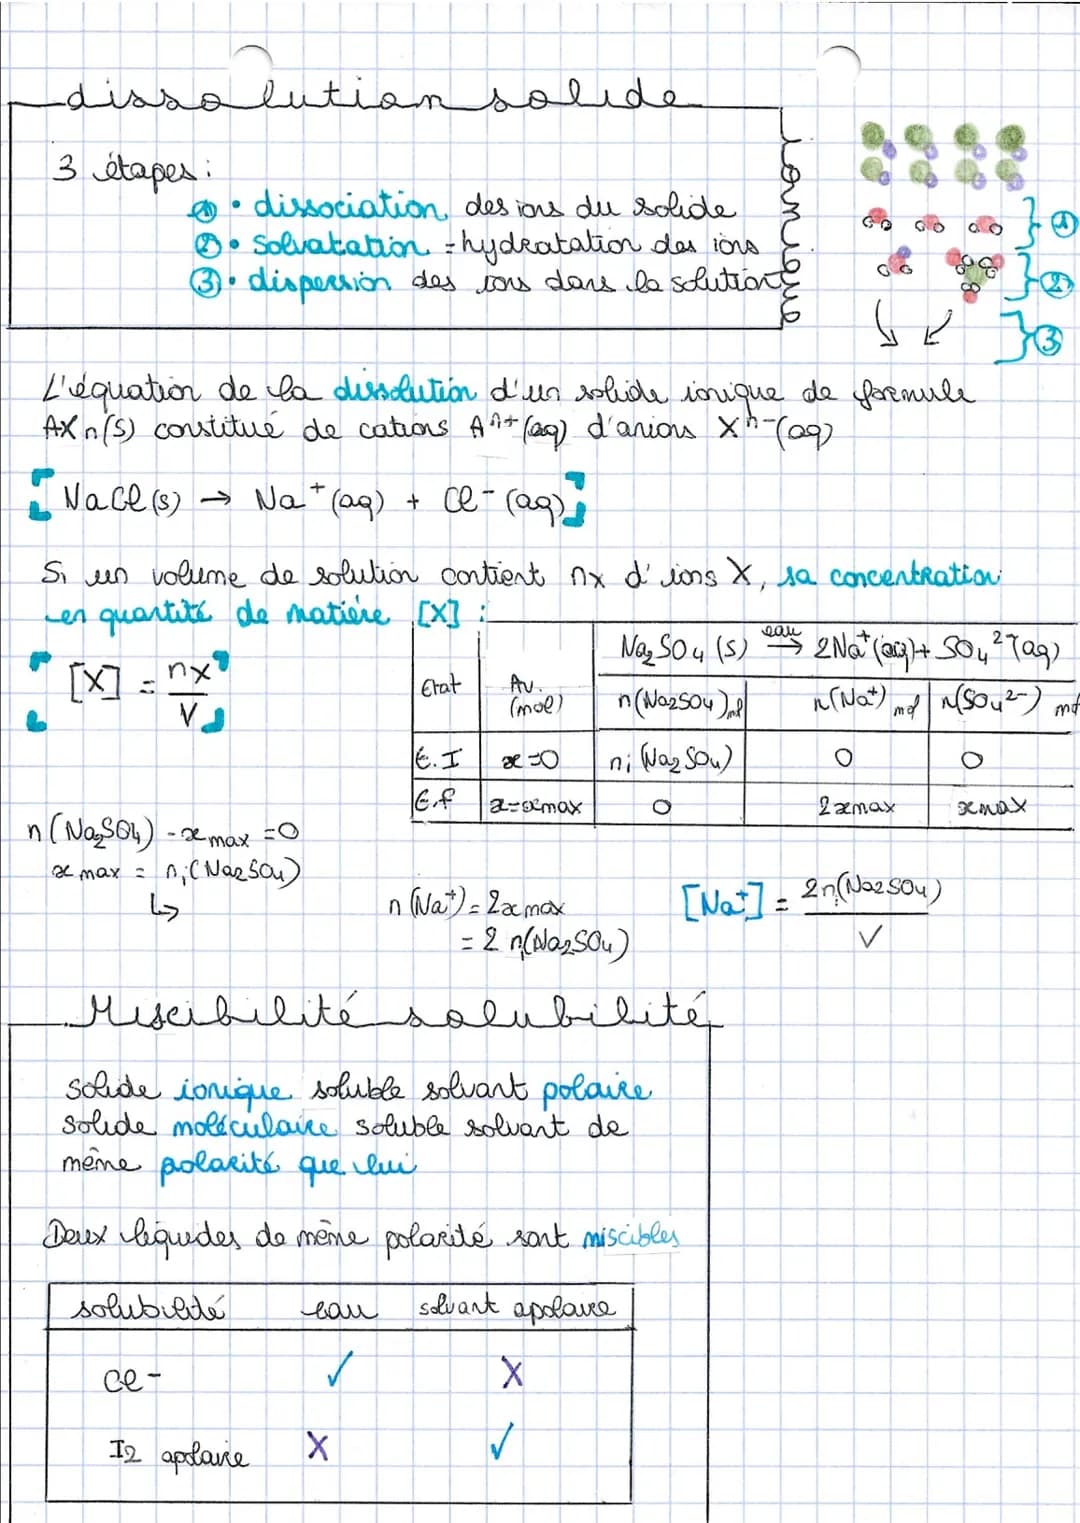 dissolution solide
ionique
3 étapes :
① • dissociation des ions du solide
② • solvatation = hydratation des ions
③ • dispersion des ions dans la solution
①
②
③
L'équation de la dissolution d'un solide ionique de formule
AXn(s) constitué de cations Aⁿ⁺(aq) d'anions Xⁿ⁻(aq)
[NaCl(s) → Na⁺(aq) + Cl⁻(aq)]
Si un volume de solution contient nx d'ions X, sa concentration
en quantité de matière [X] :
[X] = nx / V
Na₂SO₄(s) eau → 2Na⁺(aq) + SO₄²⁻(aq)
Etat Av. (mol) n(Na2SO4) n(Na⁺) n(SO₄²⁻)
E.I x=0 ni(Na2SO4) 0 0
E.f x=xmax 0 2xmax xmax
n(Na₂SO4) - xmax = 0
xmax = ni(Na2SO4)
↳
n(Na⁺) = 2xmax
= 2ni(Na2SO4)
[Na⁺] = 2ni(Na2SO4) / V
Miscibilité solubilité
solide ionique soluble solvant polaire
solide moléculaire soluble solvant de
même polarité que lui
Deux liquides de même polarité sont miscibles
solubilité eau solvant apolaire
Cl- ✓ X
I2 apolaire X ✓